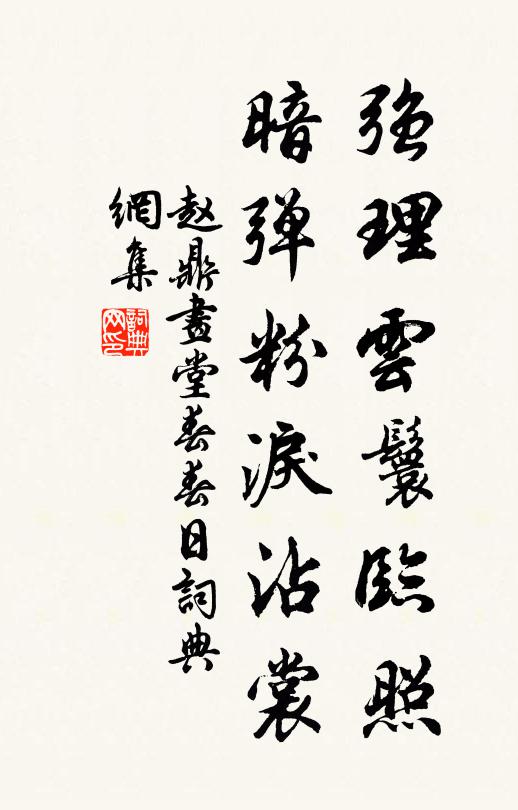 強理雲鬟臨照
暗彈粉淚沾裳
赵鼎畫堂春春日詞典
網集
詞典
网印